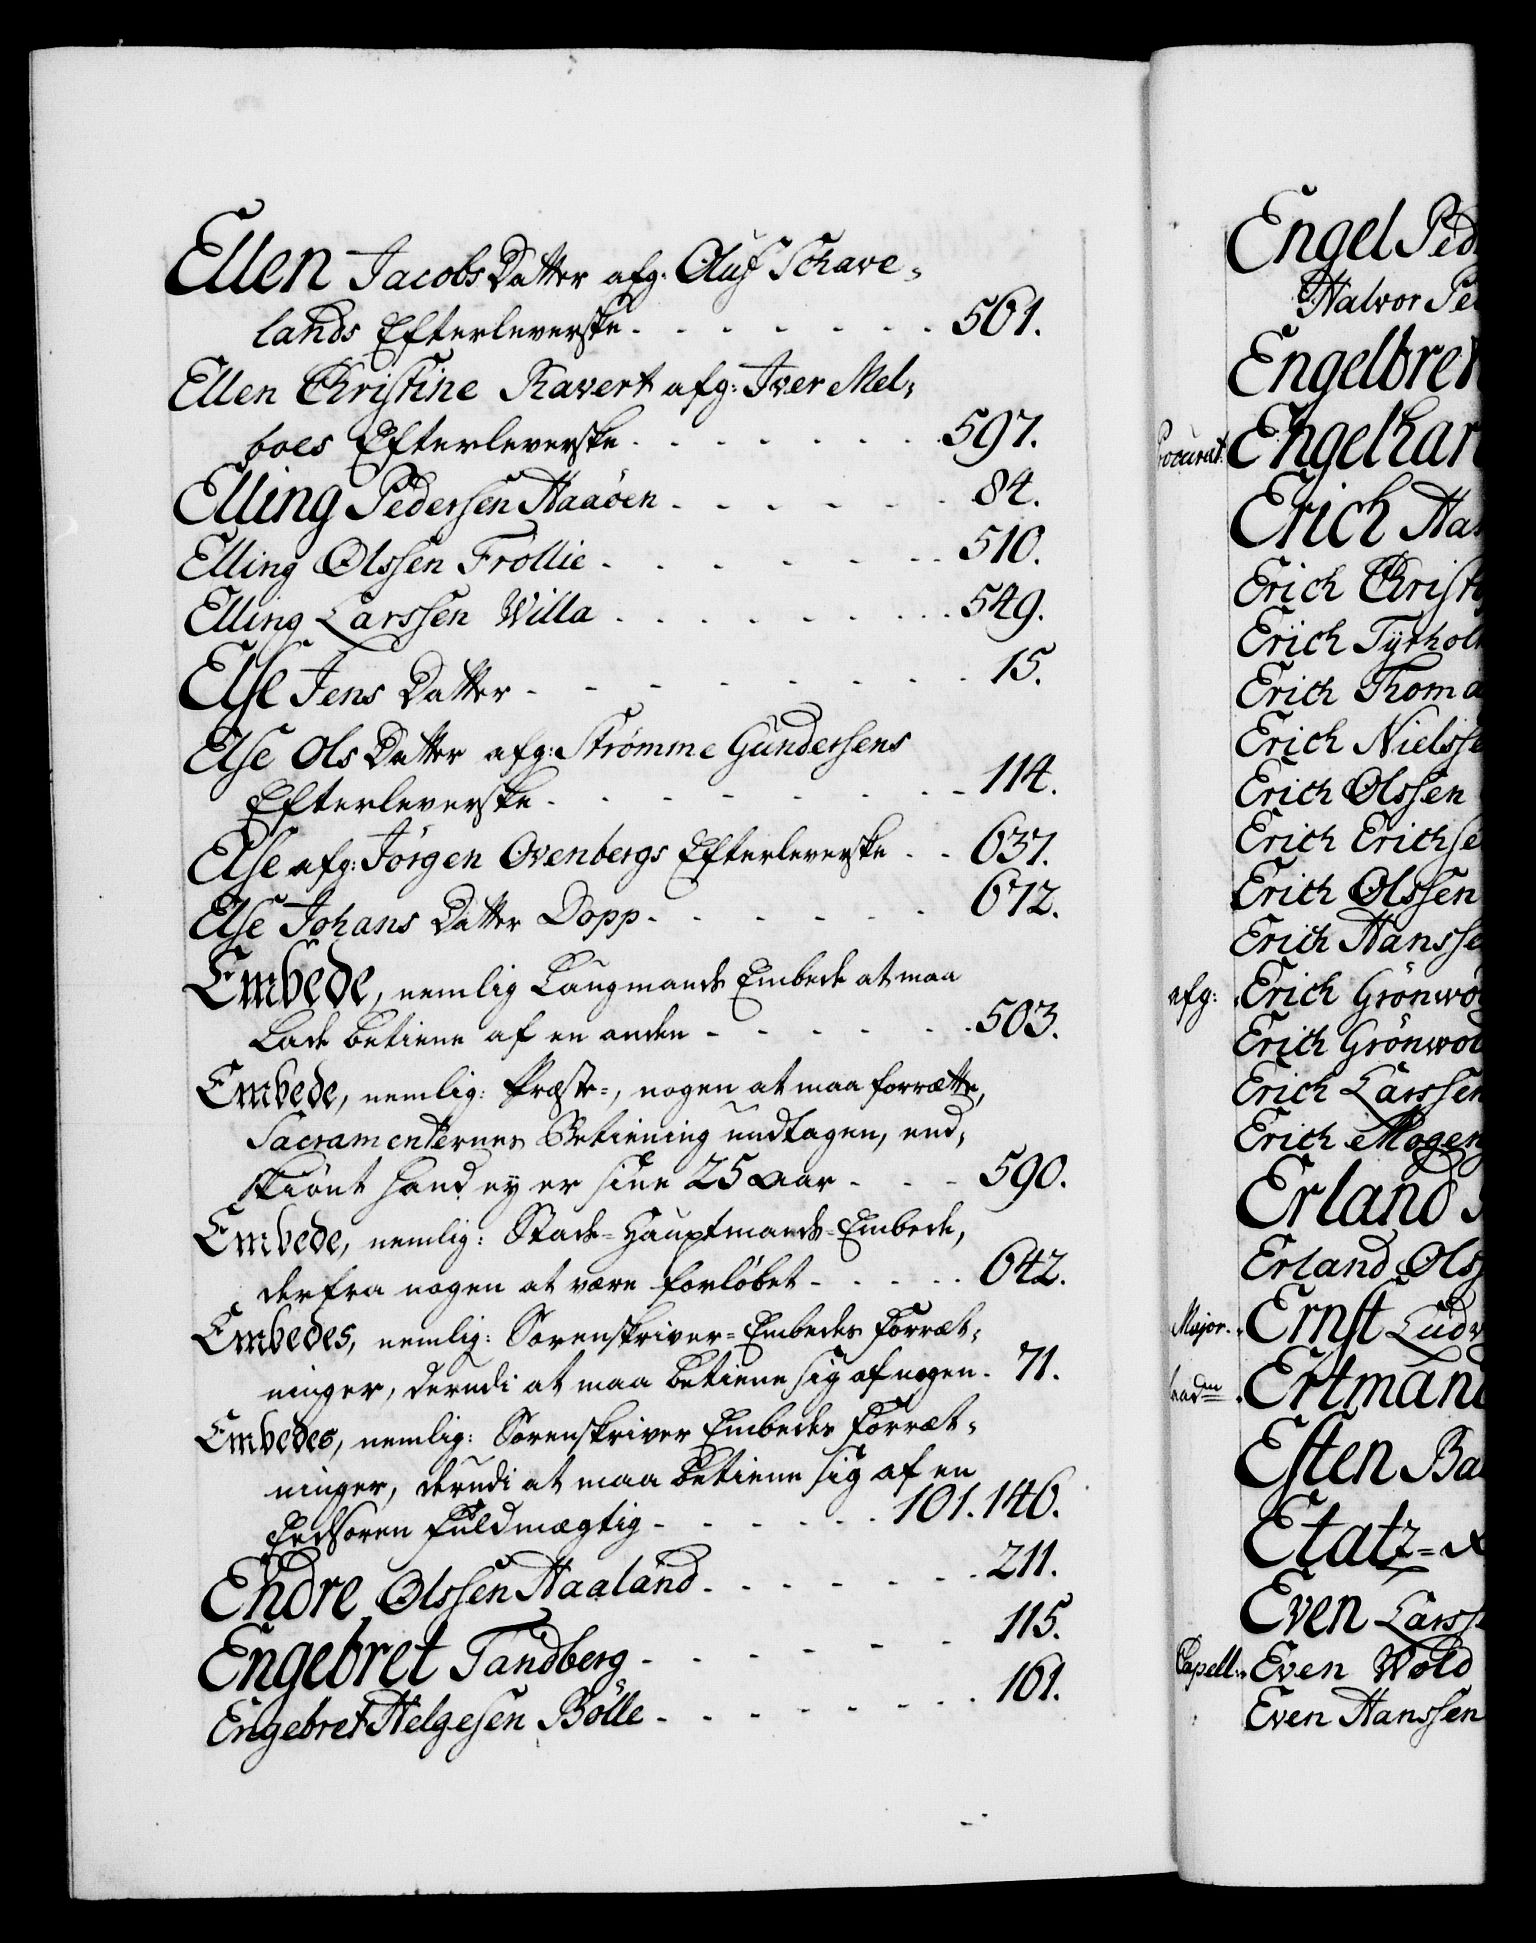 Ellen Jacobs Datter afg: Oluf Schave-
lands Efterleverske. 561.
Ellen Christine Ravert afg: Iver Mel-
boes Efterleverske. 597.
Elling Pedersen Haaöen 84.
Elling Olssen Trollie 510.
Elling Larssen Willa 549.
Else Jens Datter 15.
Else Ols Datter afg: Strømme Gundersens
Efterleverske. 114.
Else afg: Jörgen Ovenbergs Efterleverske 637.
Else Johans Datter Dopp. 672.
Embede, nemlig Laugmands Embede at maa
lade betiene af en anden 503.
Embede, nemlig: Præste-, nogen at maa forrætte,
Sacramenternes Betiening undtagen, end-
skiönt hand ey er sine 25 Aar 590.
Embede, nemlig: Stads-Hauptmands-Embede,
derfra nogen at være forløbet 642.
Embedes, nemlig: Sorenskriver-Embedes Forræt-
ninger, derudi at maa betiene sig af nogen. 71.
Embedes, nemlig: Sorenskriver Embedes Forræt-
ninger, derudi at maa betiene sig af en
Eedsoren Fuldmægtig 101. 146.
Endre Olssen Haaland. 211.
Engebret Tandberg 115.
Engebret Helgesen Bölle 161.
Engel Ped
Halvor Pe
Engelbret
Procurat: Engelhar
Erich Han
Erich Christ
Erich Tyrhol
Erich Thoma
Erich Nielsse
Erich Olssen
Erich Erichse
Erich Olssen
Erich Hansse
afg: Erich Grönwo
Erich Grönwol
Erich Larssen
Erich Mogen
Erland
Erland Ols
Major. Ernst Ludv
Ertmand
Esten Ba
Etatz-
Even Larss
Capell: Even Wold
Even Hanssen